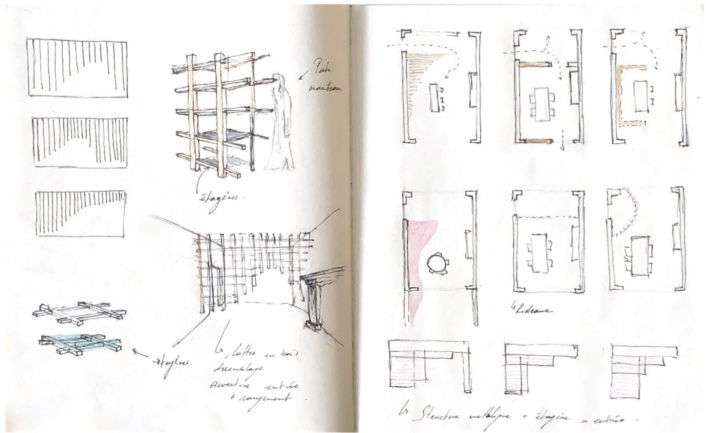 Porte
manteau
étagères.
étagères
↳ lattes en bois
assemblage
ouverture entrée
+ rangement.
↳ Rideaux
↳ Structure métallique + étagère = entrée.